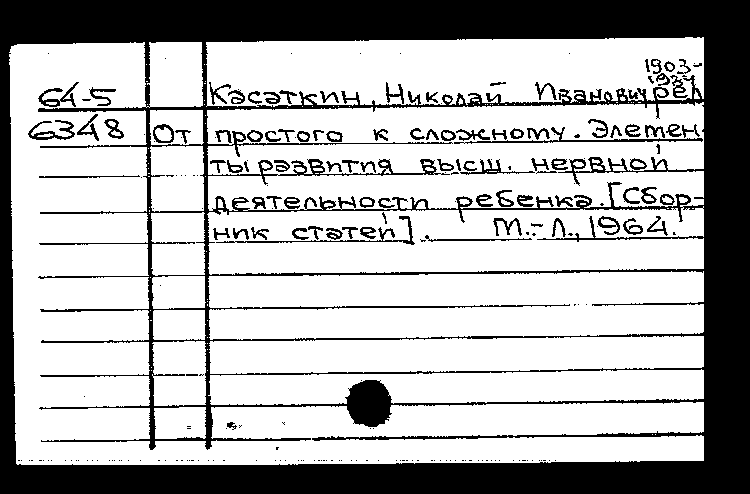 1903-
1934
64-5 Касаткин, Николай Иванович, ред
6348 От простого к сложному. Элемен-
ты развития высш. нервной
деятельности ребенка. [Сбор-
ник статей]. М.-Л., 1964.